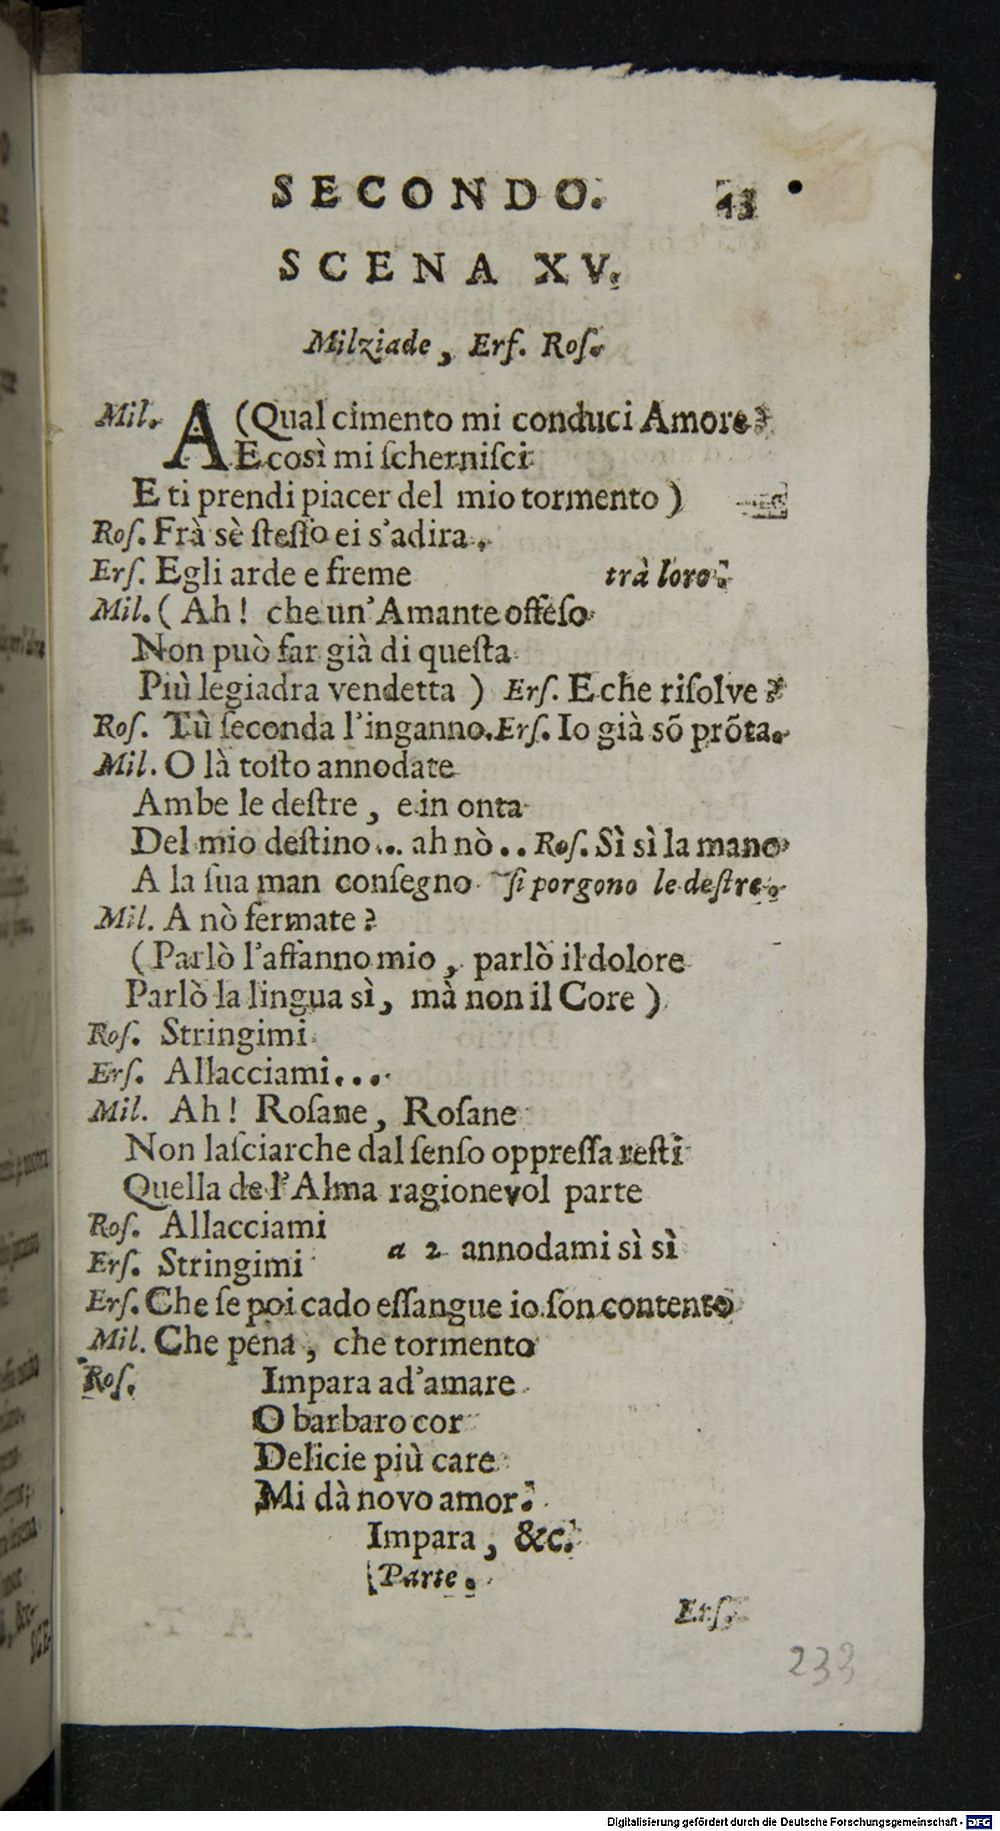 SECONDO. 43
SCENA XV.
Milziade, Erſ. Roſ.
Mil. A (Qual cimento mi conduci Amore?
E così mi ſcherniſci
E ti prendi piacer del mio tormento)
Roſ. Frà sè ſteſſo ei s'adira.
Erſ. Egli arde e freme trà loro.
Mil. (Ah! che un'Amante offeſo
Non può far già di queſta
Più legiadra vendetta) Erſ. E che riſolve?
Roſ. Tù ſeconda l'inganno. Erſ. Io già sõ prõta.
Mil. O là toſto annodate
Ambe le deſtre, e in onta
Del mio deſtino... ah nò.. Roſ. Sì sì la mano
A la ſua man conſegno ſi porgono le deſtre.
Mil. A nò fermate?
(Parlò l'affanno mio, parlò il dolore
Parlò la lingua sì, mà non il Core)
Roſ. Stringimi
Erſ. Allacciami...
Mil. Ah! Roſane, Roſane
Non laſciar che dal ſenſo oppreſſa reſti
Quella de l'Alma ragionevol parte
Roſ. Allacciami
Erſ. Stringimi a 2 annodami sì sì
Erſ. Che ſe poi cado eſſangue io ſon contento
Mil. Che pena, che tormento
Roſ. Impara ad'amare
O barbaro cor
Delicie più care
Mi dà novo amor.
Impara, &c.
[Parte.
Erſ.
233
Digitalisierung gefördert durch die Deutsche Forschungsgemeinschaft - DFG